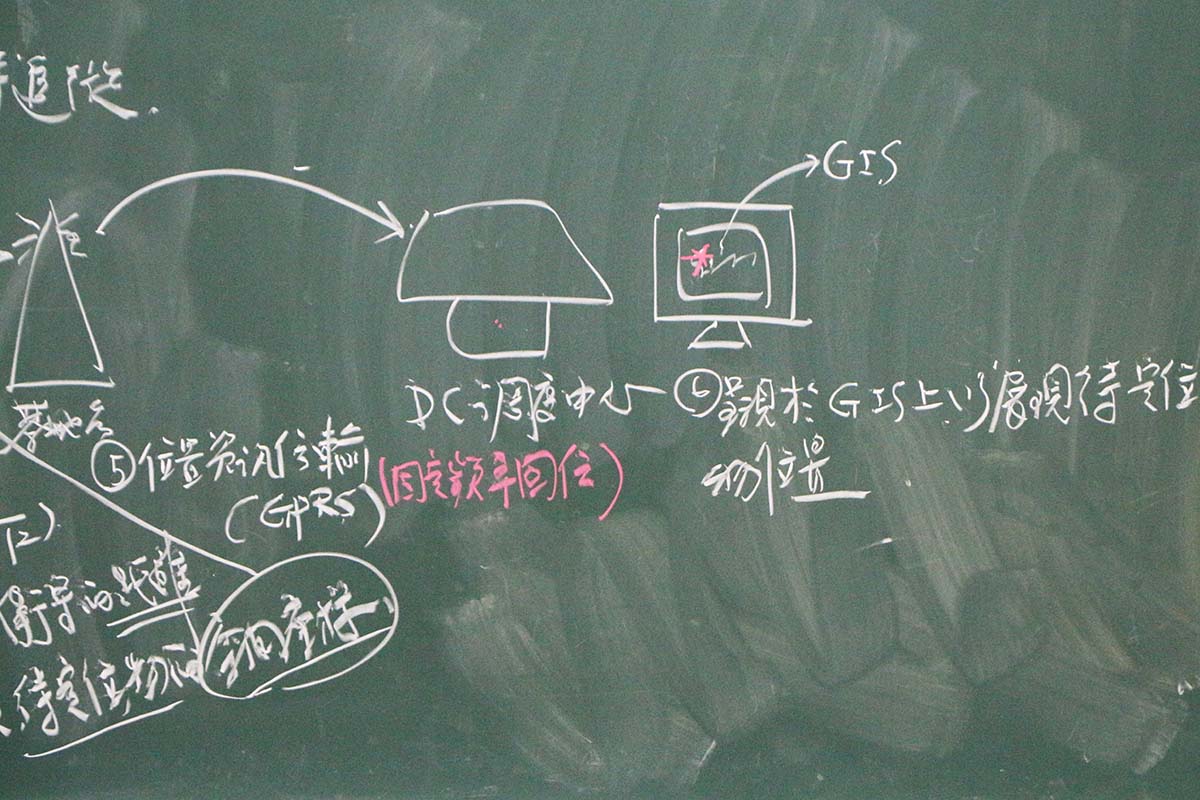 追蹤.
GIS
基地台
DC 調度中心
⑥ 呈現於GIS上以展現待定位
物位置
⑤ 位置資訊傳輸
(GPRS)
(固定頻率回位)
衛星的距離
待定位物的空間座標